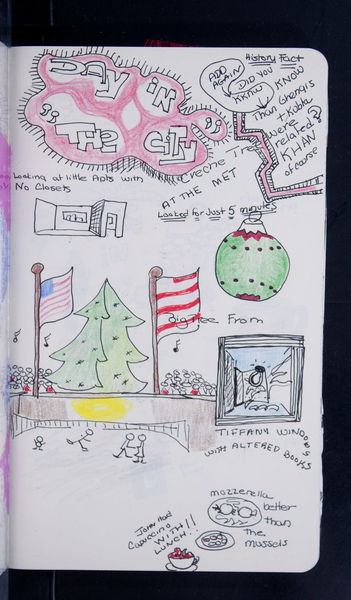 DAY IN
THE CITY
History Fact
ADD
AGAIN
DID YOU
KNOW
KNOW
Than Ghengis
+ Kubla
were
related?
KHAN
of course
Looking at little Apts with
No Closets
Creche Tree
AT THE MET
Looked for Just 5 minutes
Big Tree From
TIFFANY WINDOWS
with ALTERED BOOKS
mozzerella
better
than
the
mussels
John Had
Capuccino
WITH
LUNCH!!